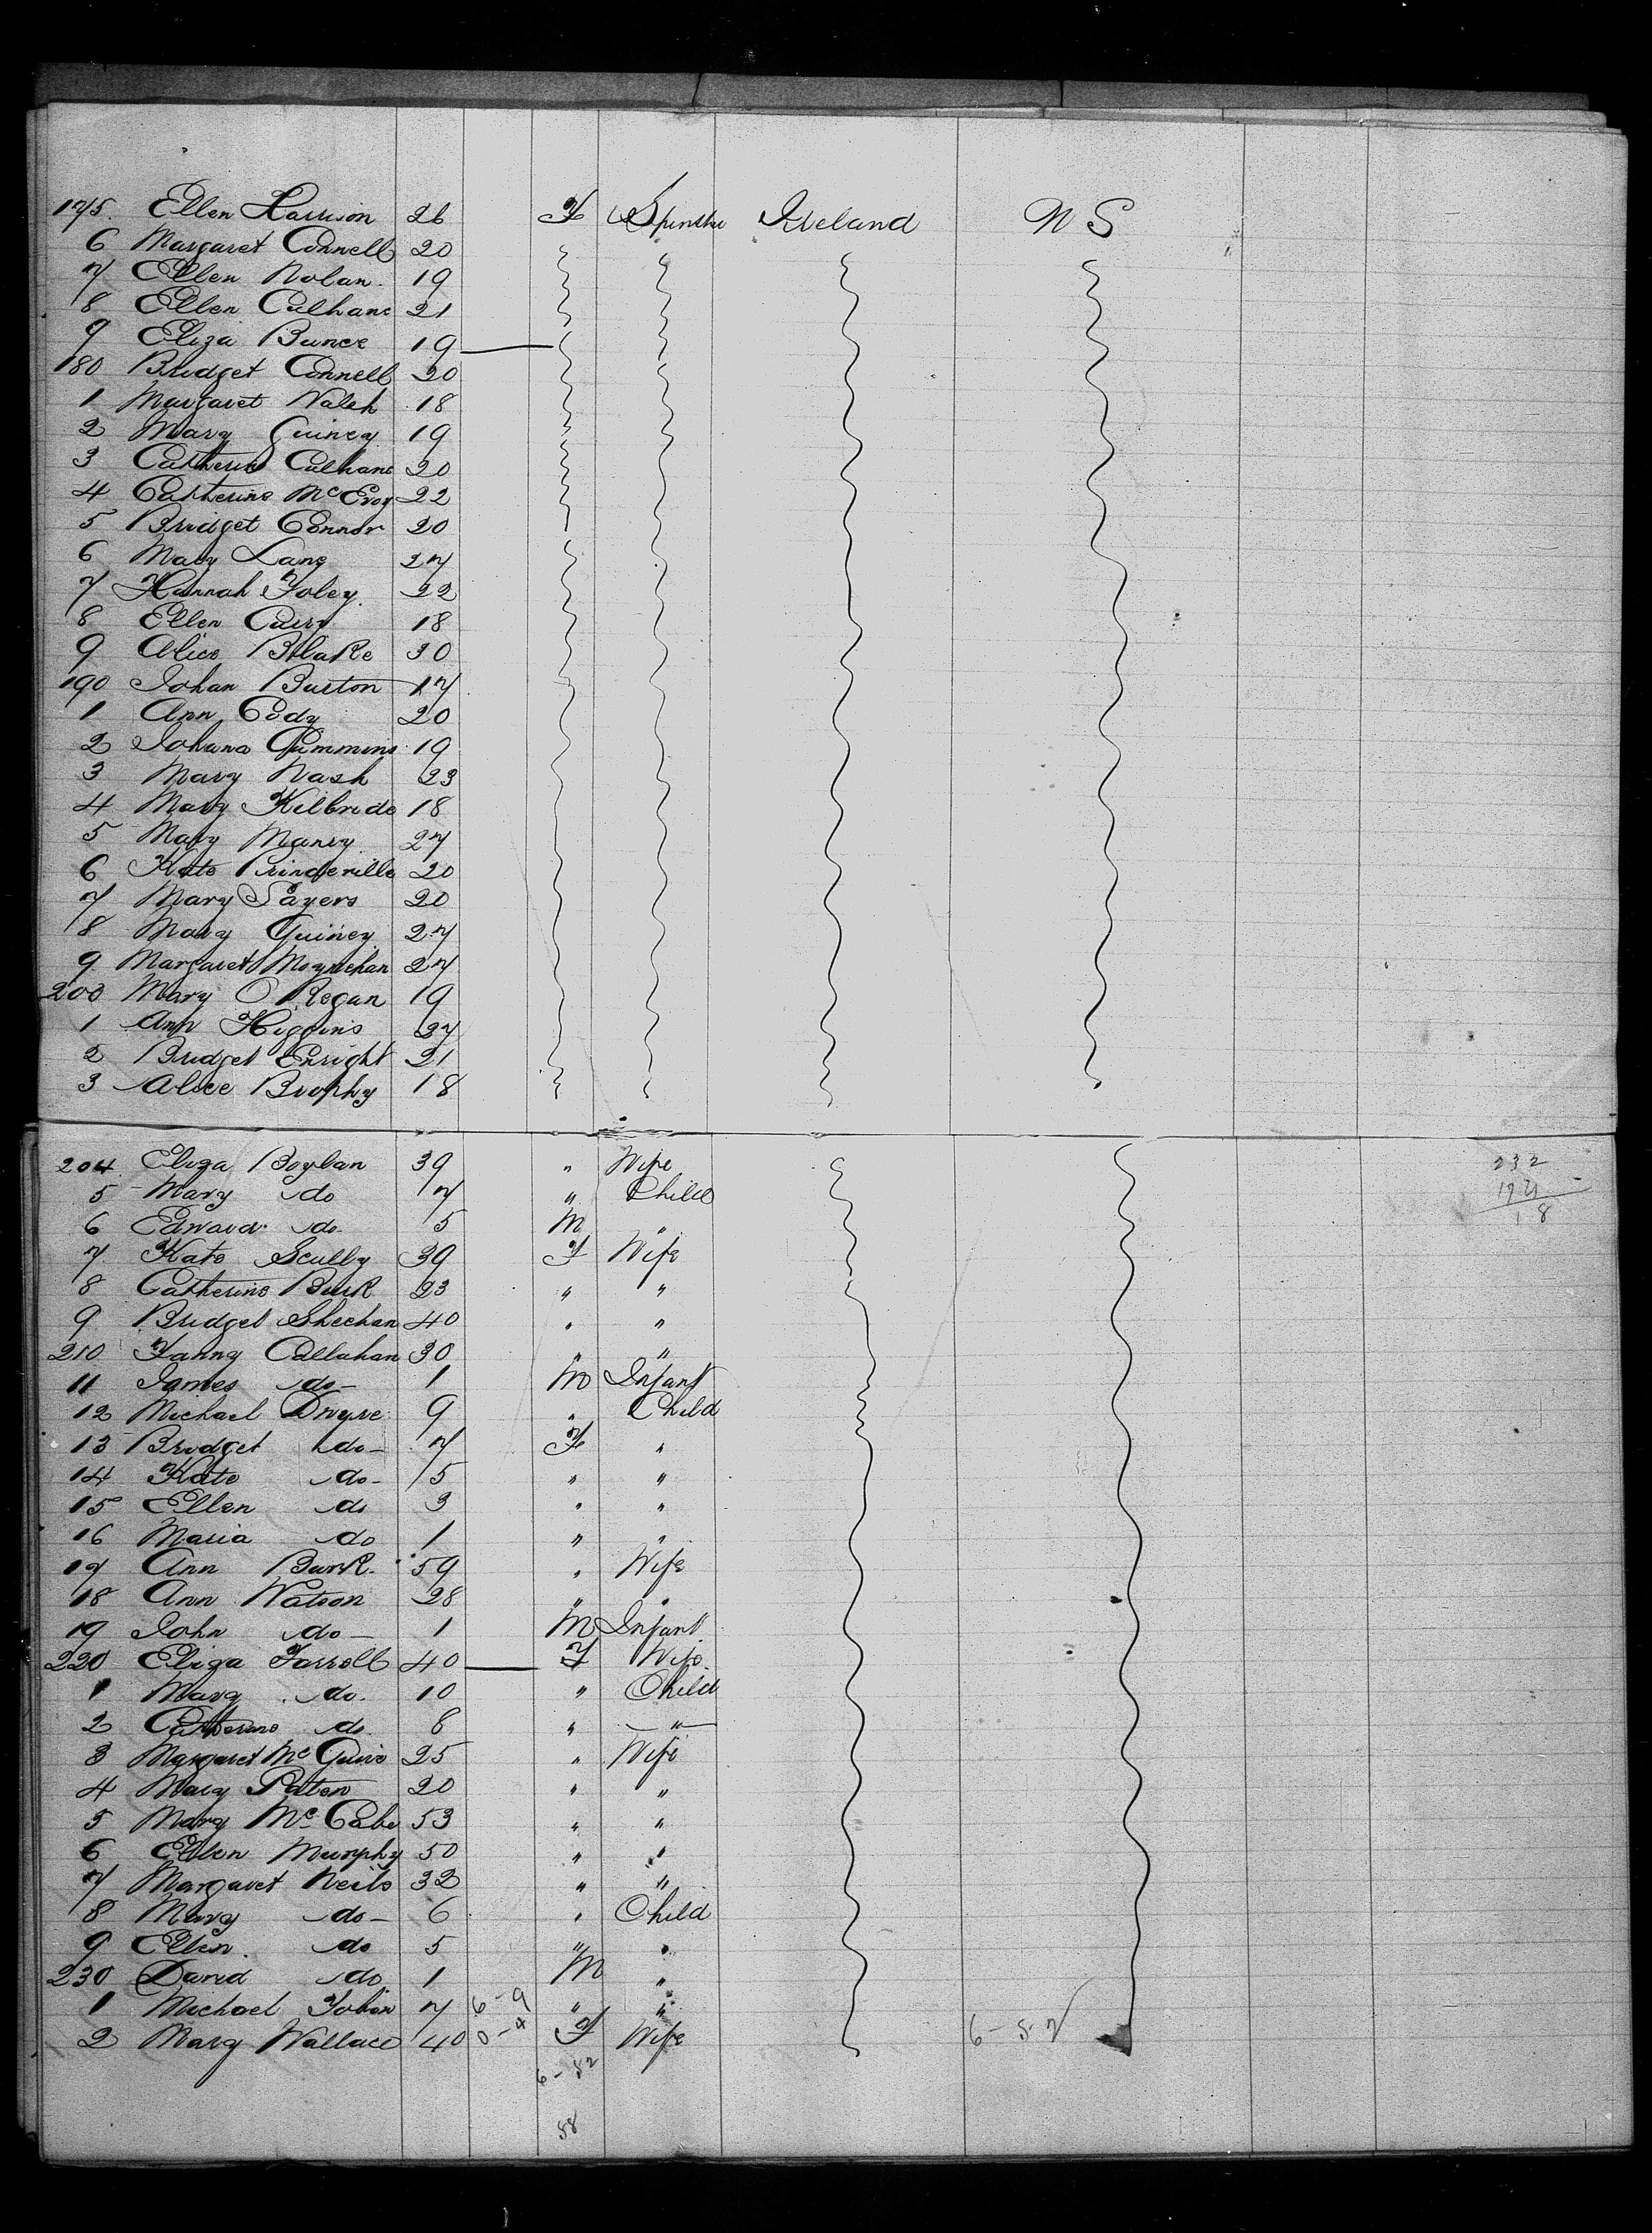 175. Ellen Harrison 26 F Spinster Ireland U S
6 Margaret Connell 20
7 Ellen Nolan 19
8 Ellen Culhane 21
9 Eliza Bunce 19
180 Bridget Connell 20
1 Margaret Walsh 18
2 Mary Guiney 19
3 Catherine Culhane 20
4 Catherine McEvoy 22
5 Bridget Connor 20
6 Mary Lane 27
7 Hannah Foley 22
8 Ellen Casey 18
9 Alice Blake 30
190 Johan Burton 17
1 Ann Cody 20
2 Johana Cummins 19
3 Mary Nash 23
4 Mary Kilbride 18
5 Mary 27
6 Kate Prinderville 20
7 Mary Sayers 20
8 Mary Guiney 27
9 Margaret Moynehan 27
200 Mary O Regan 19
1 Ann Higgins 37
2 Bridget Enright 21
3 Alice Brophy 18
204 Eliza Boylan 39 " Wife 232
5 Mary do 7 " Child
6 Edward do 5 M " 18
7 Kate Scully 39 F Wife
8 Catherine Burk 23 " "
9 Bridget Sheehan 40 " "
210 Fanny Callahan 30 " "
11 James do 1 M Infant
12 Michael Dwyre 9 " Child
13 Bridget do 7 F "
14 Kate do 5 " "
15 Ellen do 3 " "
16 Maria do 1 " "
17 Ann Burk 59 " Wife
18 Ann Watson 28 " "
19 John do 1 M Infant
220 Eliza Farrell 40 F Wife
1 Mary do 10 " Child
2 Catherine do 8 " "
3 Margaret McGuire 25 " Wife
4 Mary Paton 20 " "
5 Mary McCabe 53 " "
6 Ellen Murphy 50 " "
7 Margaret Neils 32 " "
8 Mary do 6 " Child
9 Ellen do 5 " "
230 David do 1 M "
1 Michael Tobin 7 6-9 " "
2 Mary Wallace 40 0-4 F Wife 6-52
6-52
58